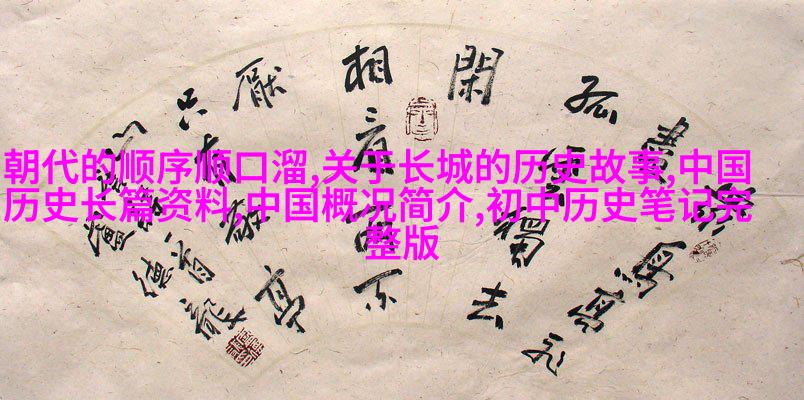 朝代的顺序顺口溜,关于长城的历史故事,中国
历史长篇资料,中国概况简介,初中历史笔记完
整版
鳥高飛
盡
孤雲獨去
閑
相看兩不
厭
只有敬亭